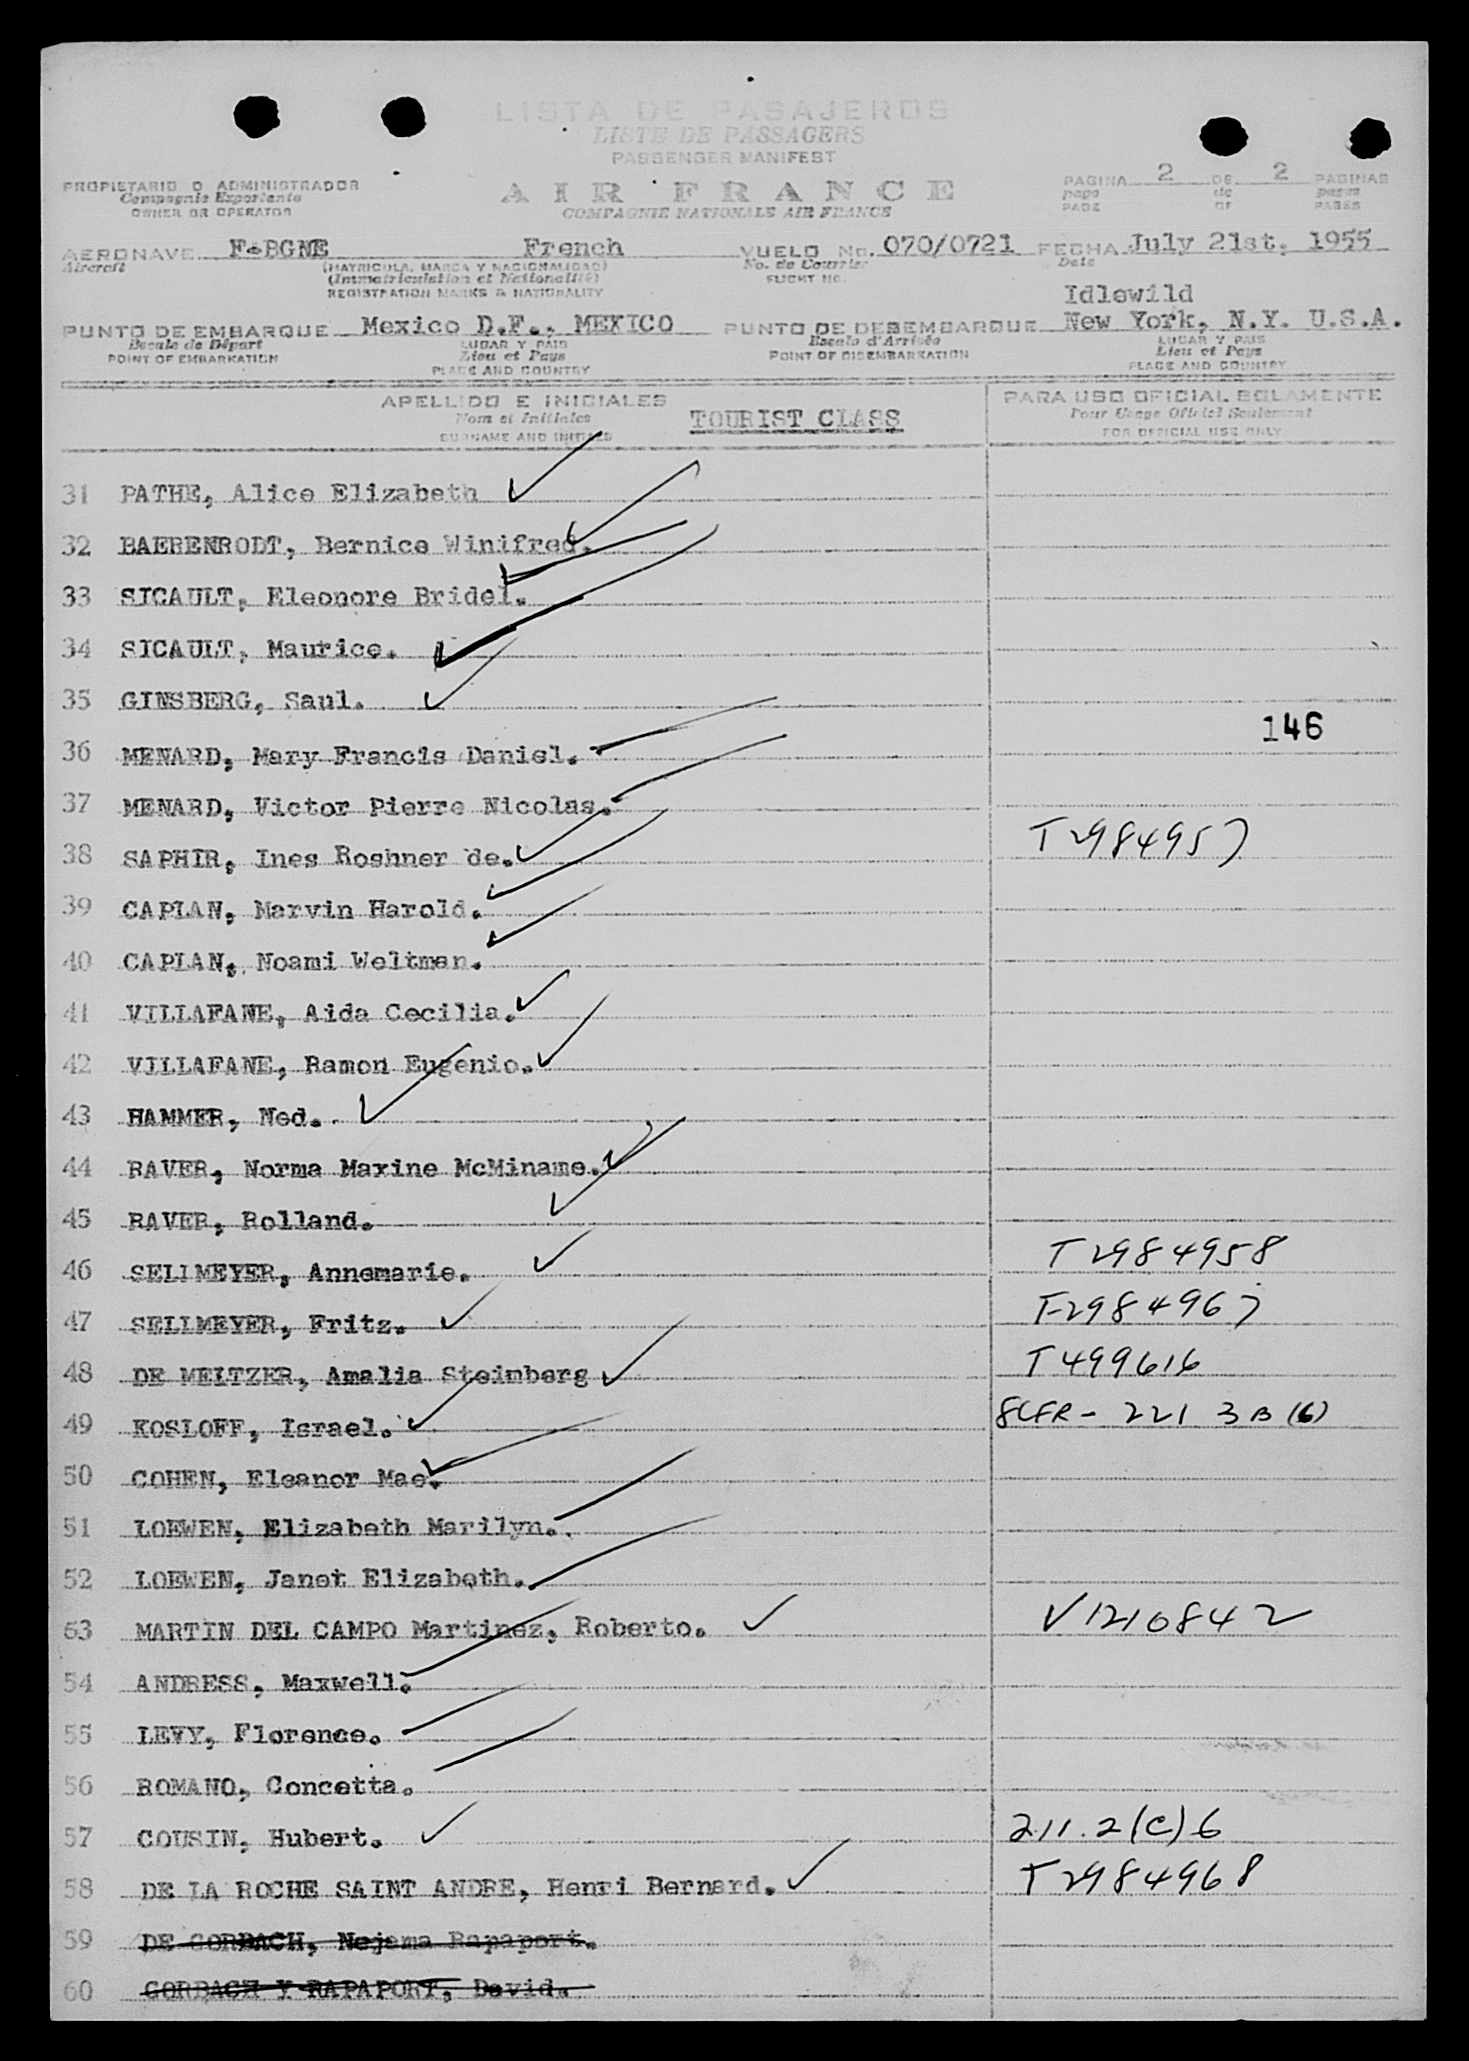 LISTA DE PASAJEROS
LISTE DE PASSAGERS
PASSENGER MANIFEST
PROPIETARIO O ADMINISTRADOR
Compagnie Exportante
OWNER OR OPERATOR
AIR FRANCE
COMPAGNIE NATIONALE AIR FRANCE
PAGINA 2 DE 2 PAGINAS
page de pages
PAGE OF PAGES
AERONAVE F-BGNE French VUELO No. 070/0721 FECHA July 21st. 1955
Aircraft (MATRICULA, MARCA Y NACIONALIDAD) No. de Courrier Date
(Immatriculation et Nationalité) FLIGHT NO.
REGISTRATION MARKS & NATIONALITY
Idlewild
PUNTO DE EMBARQUE Mexico D.F., MEXICO PUNTO DE DESEMBARQUE New York, N.Y. U.S.A.
Escale de Départ LUGAR Y PAIS Escale d'Arrivée LUGAR Y PAIS
POINT OF EMBARKATION Lieu et Pays POINT OF DISEMBARKATION Lieu et Pays
PLACE AND COUNTRY PLACE AND COUNTRY
APELLIDO E INICIALES PARA USO OFICIAL SOLAMENTE
Nom et Initiales TOURIST CLASS Pour Usage Officiel Seulement
SURNAME AND INITIALS FOR OFFICIAL USE ONLY
31 PATHE, Alice Elizabeth
32 BAERENRODT, Bernice Winifred.
33 SICAULT, Eleonore Bridel.
34 SICAULT, Maurice.
35 GINSBERG, Saul.
146
36 MENARD, Mary Francis Daniel.
37 MENARD, Victor Pierre Nicolas.
38 SAPHIR, Ines Roshner de. T2984957
39 CAPLAN, Marvin Harold.
40 CAPLAN, Noami Weltman.
41 VILLAFANE, Aida Cecilia.
42 VILLAFANE, Ramon Eugenio.
43 HAMMER, Ned.
44 RAVER, Norma Maxine McMiname.
45 RAVER, Rolland.
46 SELLMEYER, Annemarie. T2984958
47 SELLMEYER, Fritz. T-2984967
48 DE MELTZER, Amalia Steinberg T499616
49 KOSLOFF, Israel. 8CFR - 221 3B (6)
50 COHEN, Eleanor Mae.
51 LOEWEN, Elizabeth Marilyn.
52 LOEWEN, Janet Elizabeth.
53 MARTIN DEL CAMPO Martinez, Roberto. V1210842
54 ANDRESS, Maxwell.
55 LEVY, Florence.
56 ROMANO, Concetta.
57 COUSIN, Hubert. 211.2(C)6
58 DE LA ROCHE SAINT ANDRE, Henri Bernard. T2984968
59 DE GORBACH, Nejama Rapaport.
60 GORBACH Y RAPAPORT, David.